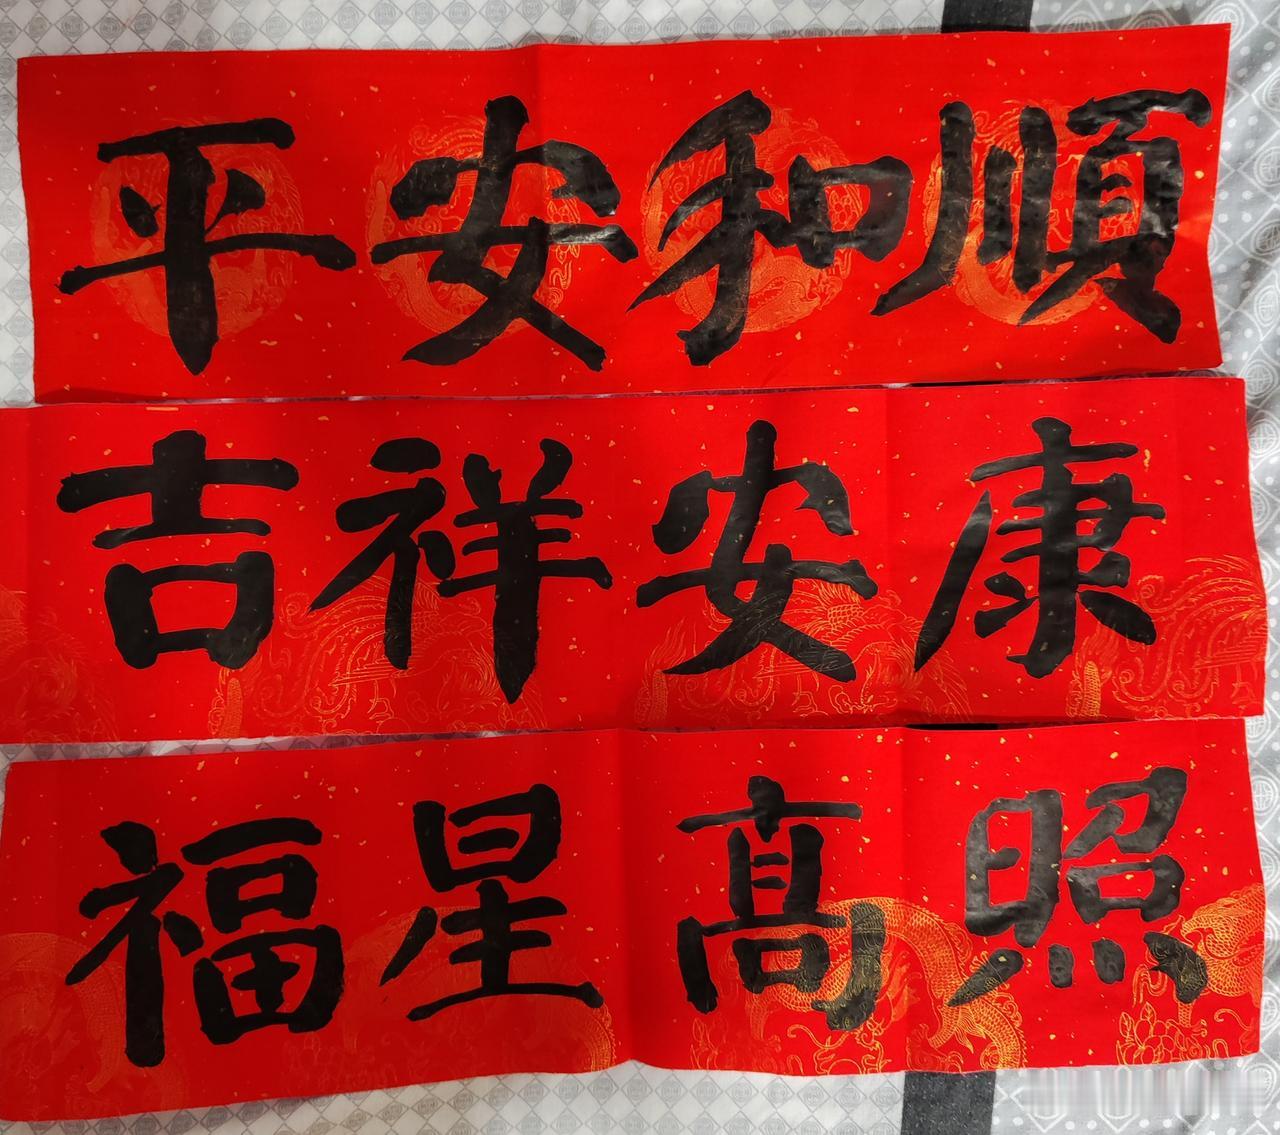 平安和順
吉祥安康
福星髙照